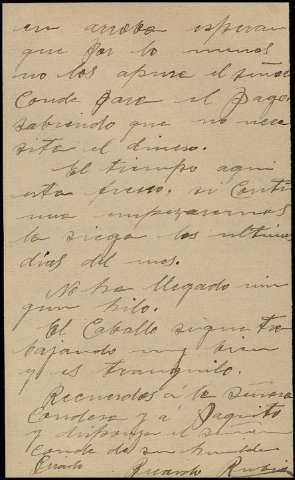 en arroba esperan
que por lo menos
no los apure el señor
Conde para el pago
sabiendo que no nece
sita el dinero.
El tiempo aqui
esta fresco. si Conti
nua empezaremos
la siega los ultimos
dias del mes.
No ha llegado nin
gun hilo.
El Caballo sigue tra
bajando muy bien
y es tranquilo.
Recuerdos á la señora
Condesa y á Paquito
y disponga el señor
conde de su humilde
Criado. Ricardo Rubio